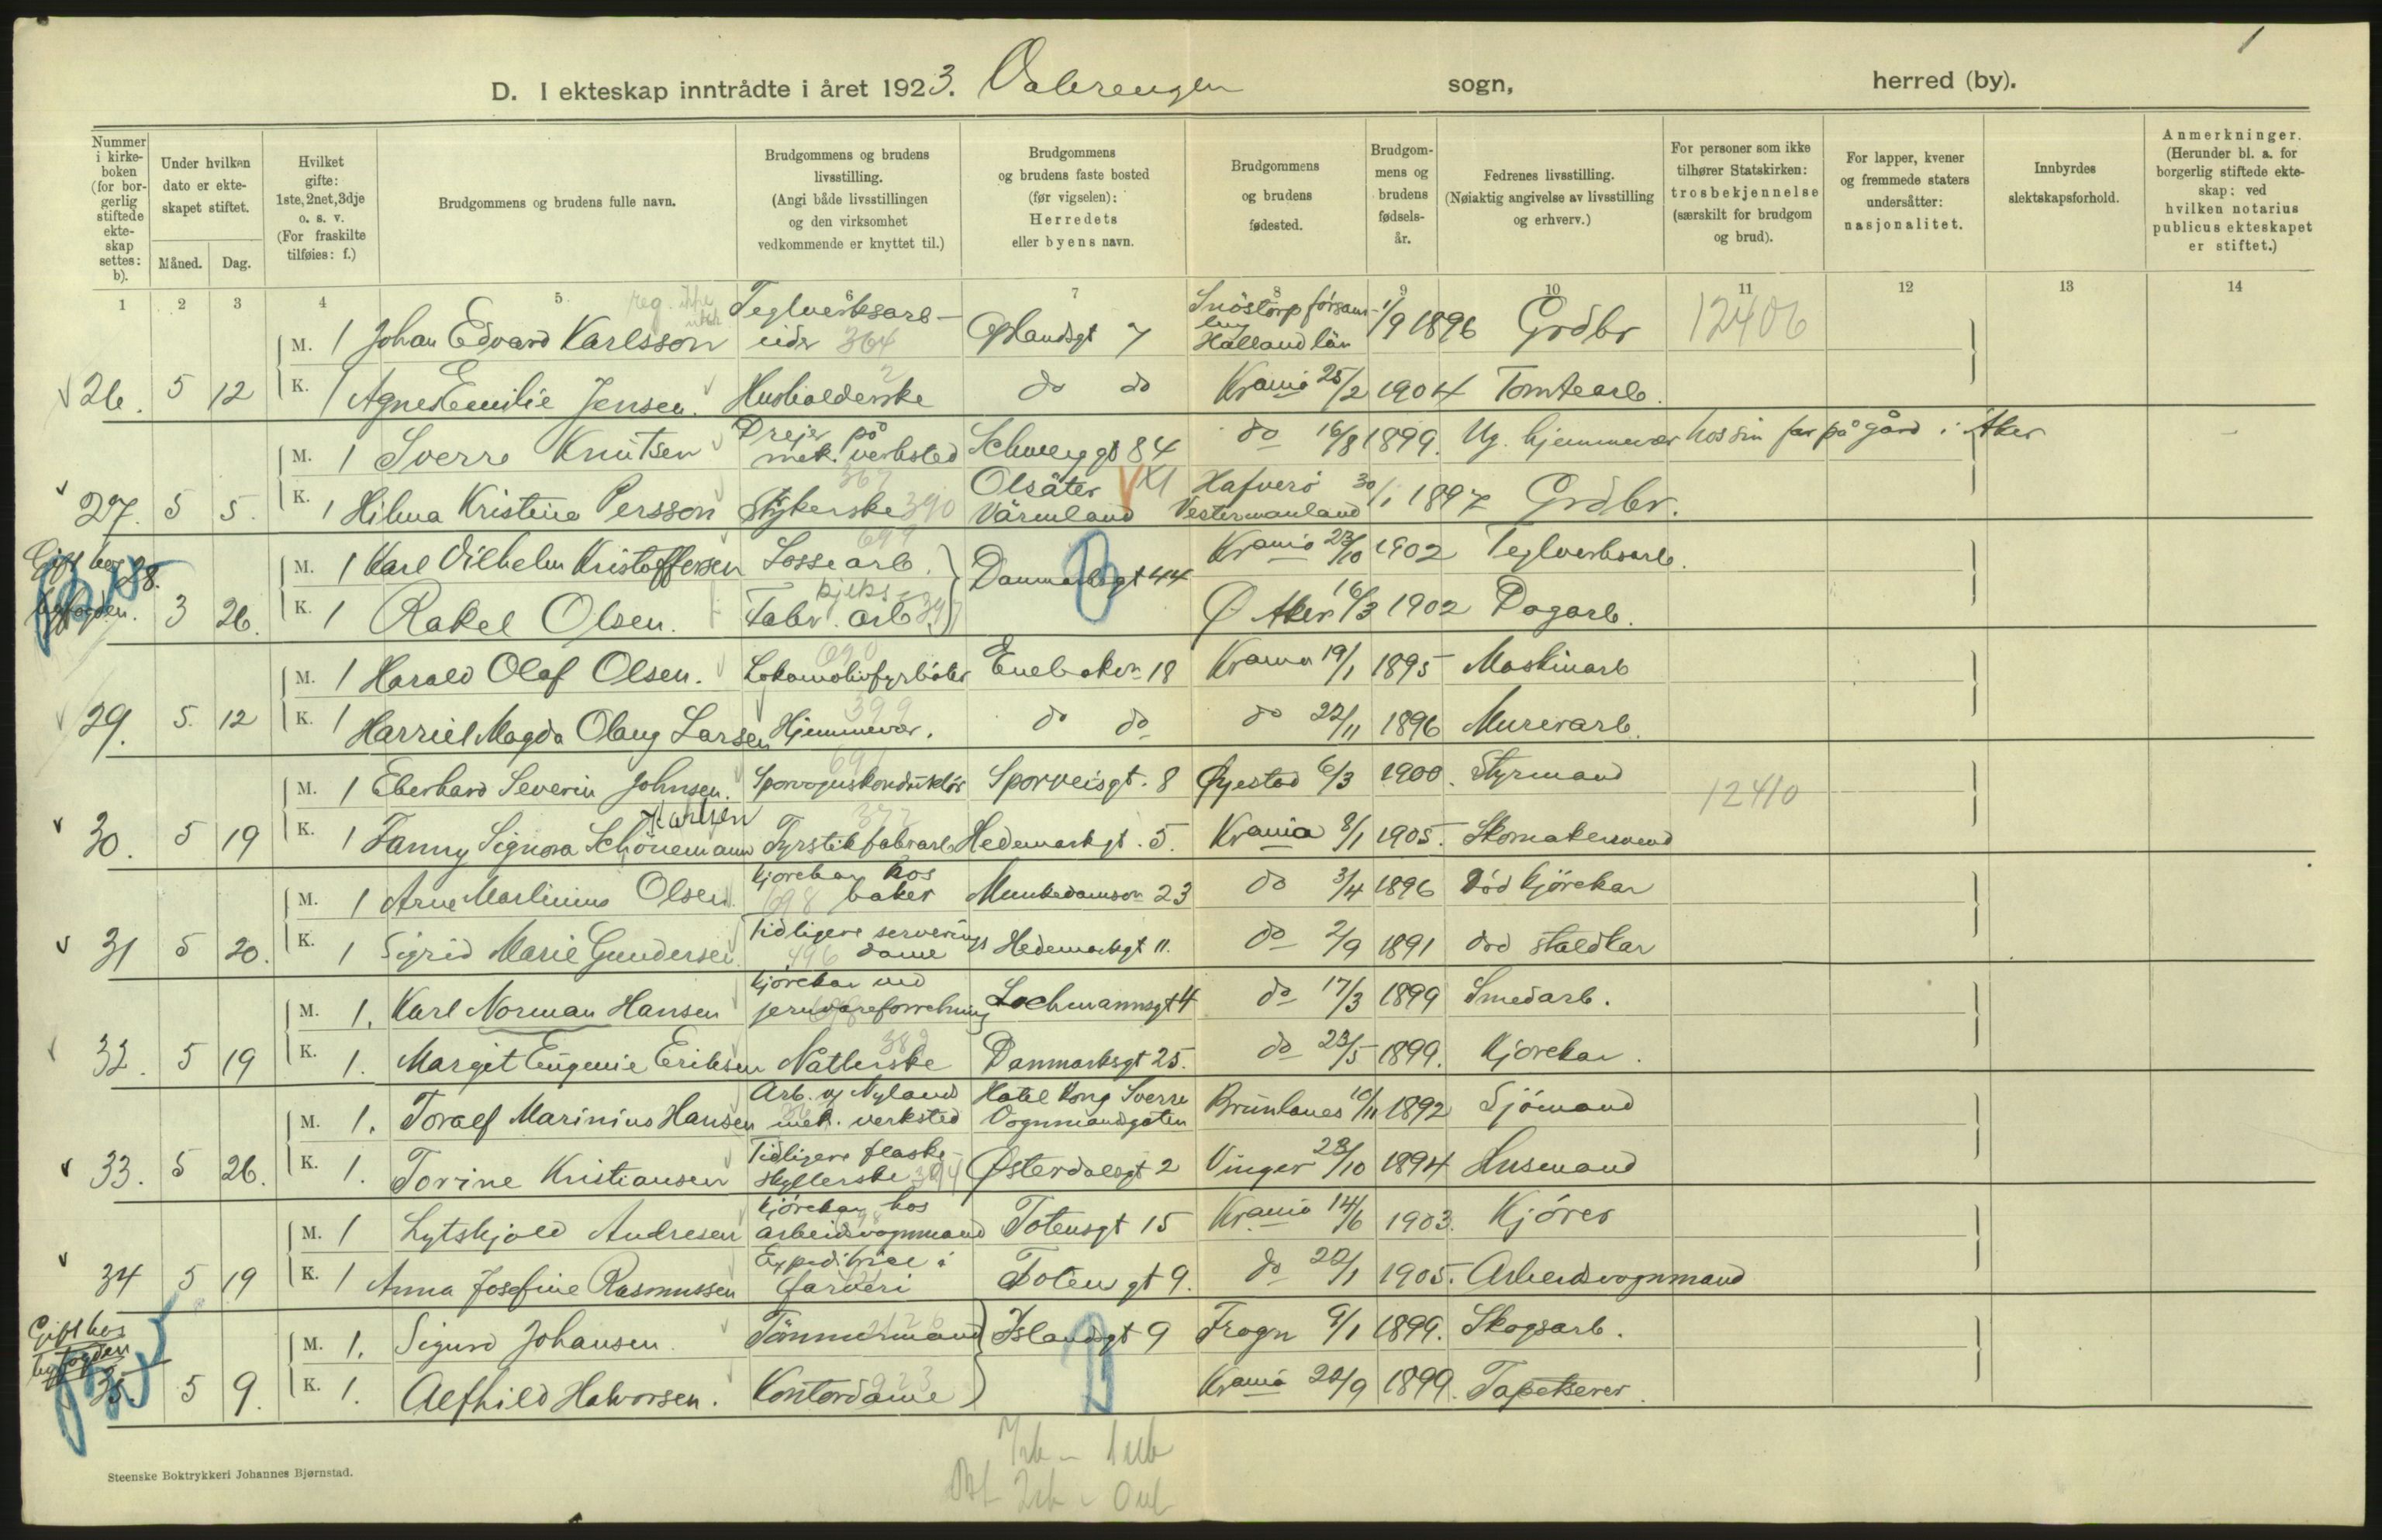 1
D. I ekteskap inntrådte i året 1923. Valerengen sogn, herred (by).
Nummer i kirkeboken (for borgerlig stiftede ekteskap settes: b).
Under hvilken dato er ekteskapet stiftet.
Måned. Dag.
Hvilket gifte: 1ste, 2net, 3dje o. s. v. (For fraskilte tilføies: f.)
Brudgommens og brudens fulle navn.
Brudgommens og brudens livsstilling. (Angi både livsstillingen og den virksomhet vedkommende er knyttet til.)
Brudgommens og brudens faste bosted (før vigselen): Herredets eller byens navn.
Brudgommens og brudens fødested.
Brudgommens og brudens fødselsår.
Fedrenes livsstilling. (Nøiaktig angivelse av livsstilling og erhverv.)
For personer som ikke tilhører Statskirken: trosbekjennelse (særskilt for brudgom og brud).
For lapper, kvener og fremmede staters undersåtter: nasjonalitet.
Innbyrdes slektskapsforhold.
Anmerkninger. (Herunder bl. a. for borgerlig stiftede ekteskap: ved hvilken notarius publicus ekteskapet er stiftet.)
1 2 3 4 5 7 8 9 10 11 12 13 14
M. 1 Johan Edvard Karlsson Teglverksarbeider 364 Oplandsgt 7 Snöstorp församling Halland län 1/9 1896 Grdbr 12406
26. 5 12 K. 1 Agnes Emilie Jensen. Husholderske do do Krania 25/2 1904 Tomtearb.
M. 1 Sverre Knutsen Drejer på mek. verksted Schweiggt 84 do 16/8 1899. Ug. hjemmevær hos sin far på gård i Aker
27. 5 5. K. 1 Hilma Kristina Persson Strykerske 390 Olsäter Värmland XI Hafverö Vestermanland 30/1 1897 Grdbr.
Gift hos byfogden.
28. 3 26. M. 1 Karl Vilhelm Kristoffersen Lossearb. Danmarksgt 44 Krania 23/10 1902 Teglverksarb.
K. 1 Rakel Olsen. kjeks Fabr. arb. Ø Aker 16/3 1902 Dagarb.
M. 1 Harald Olaf Olsen. Lokomotivfyrbøter Enebakvn 18 Krania 19/1 1895 Maskinarb
29. 5. 12 K. 1 Harriet Magda Olaug Larsen Hjemmevær. 399 do do do 22/11 1896 Murerarb.
M. 1 Eberhard Severin Johnsen. Sporvognskonduktör Sporveisgt. 8 Øyestad 6/3 1900. Styrmand 12410
30. 5 19 K. 1 Fanny Signora Schönemann Karlsen Fyrstikfabrarb Hedemarkgt. 5. Krania 8/1 1905. Skomakersvend
M. 1 Arne Martinius Olsen kjørekar hos baker 698 Munkedamsvn 23 do 3/4 1896 Död kjörekar
31 5 20. K. 1 Sigrid Marie Gundersen. Tidligere serveringsdame 496 Hedemarkgt 11. do 2/9 1891 död staldkar
M. 1. Karl Norman Hansen kjørekar ved jernvareforretning Lochmannsgt 4 do 17/3 1899 Smedarb.
32. 5 19 K. 1. Margit Eugenie Eriksen Natterske Danmarksgt 25. do 23/5 1899. Kjørekar.
M. 1. Toralf Marinius Hansen Arb. v/ Nyland mek. verksted Hotel Kong Sverre Vognmandsgaten Brunlanes 10/11 1892 Sjömand
33. 5 26. K. 1. Torine Kristiansen Tidligere flaskeskyllerske 394 Østerdalsgt 2 Vinger 28/10 1894 Husmand
M. 1 Lytskjold Andresen kjørekar hos arbeidsvognmand Totensgt 15 Krania 14/6 1903. Kjörer
34 5 19 K. 1 Anna Josefine Rasmussen Expeditrice i farveri Toten gt 9. do 22/1 1905. Arbeidsvognmand
Gift hos byfogden
M. 1. Sigurd Johansen. Tömmermand Islandsgt 9 Frogn 9/1 1899. Skogsarb.
35. 5 9. K. 1. Alfhild Halvorsen. Kontordame 923 Krania 20/9 1899. Tapetserer.
Steenske Boktrykkeri Johannes Bjørnstad.